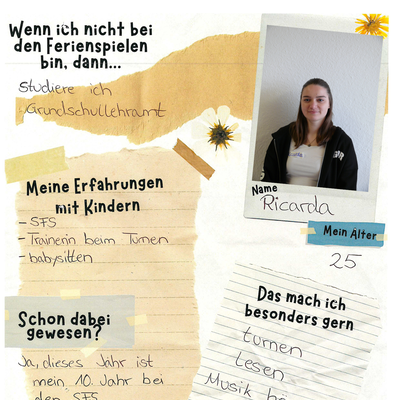 Wenn ich nicht bei
den Ferienspielen
bin, dann...
Studiere ich
Grundschullehramt
Name
Ricarda
Mein Alter
25
Meine Erfahrungen
mit Kindern
- SFS
- Trainerin beim Turnen
- babysitten
Schon dabei
gewesen?
Ja, dieses Jahr ist
mein 10. Jahr bei
den SFS
Das mach ich
besonders gern
turnen
Lesen
Musik